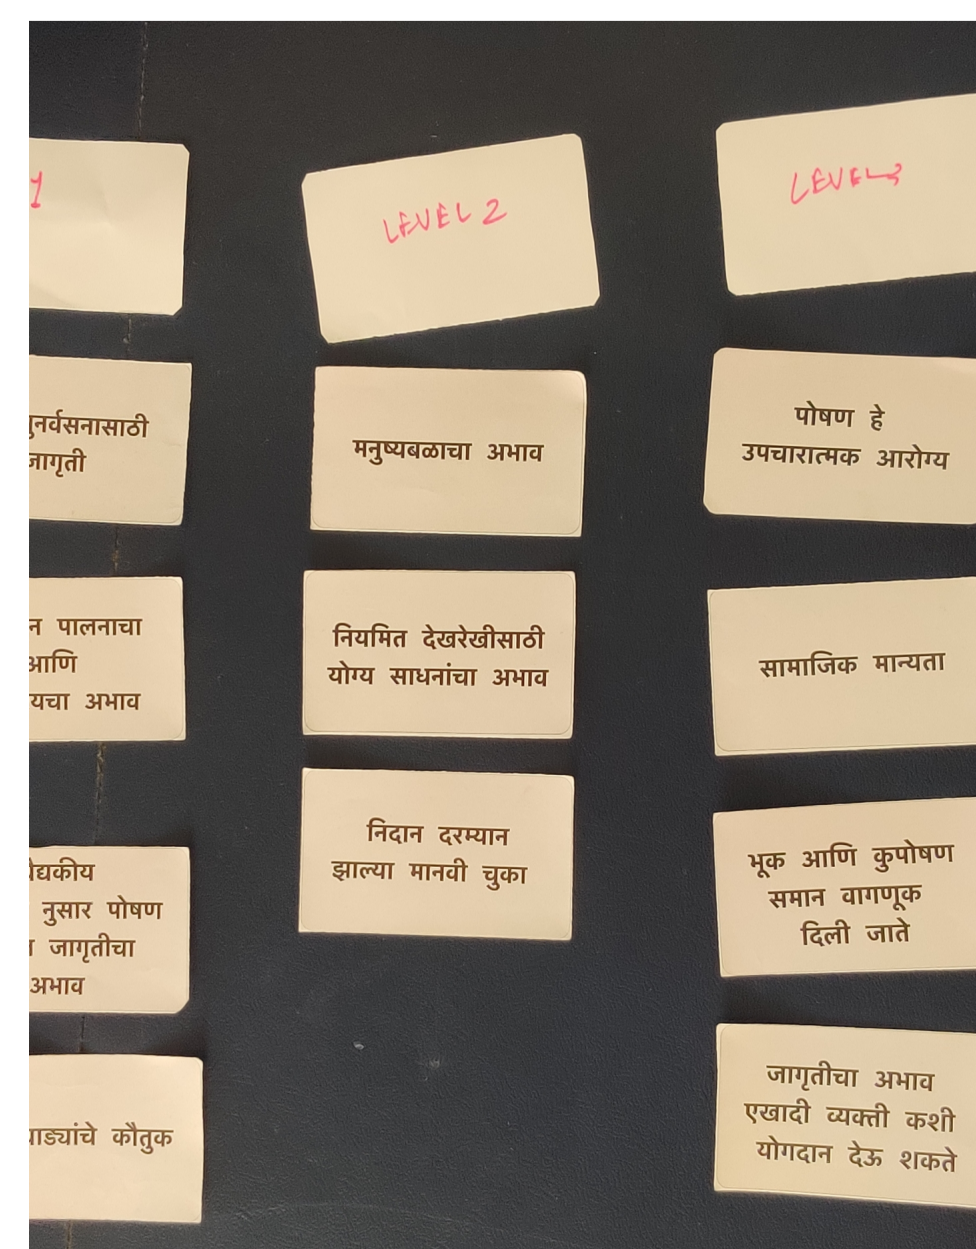 1
पुनर्वसनासाठी
जागृती
न पालनाचा
आणि
यचा अभाव
वैद्यकीय
नुसार पोषण
जागृतीचा
अभाव
वाड्यांचे कौतुक
LEVEL 2
मनुष्यबळाचा अभाव
नियमित देखरेखीसाठी
योग्य साधनांचा अभाव
निदान दरम्यान
झाल्या मानवी चुका
LEVEL 3
पोषण हे
उपचारात्मक आरोग्य
सामाजिक मान्यता
भूक आणि कुपोषण
समान वागणूक
दिली जाते
जागृतीचा अभाव
एखादी व्यक्ती कशी
योगदान देऊ शकते